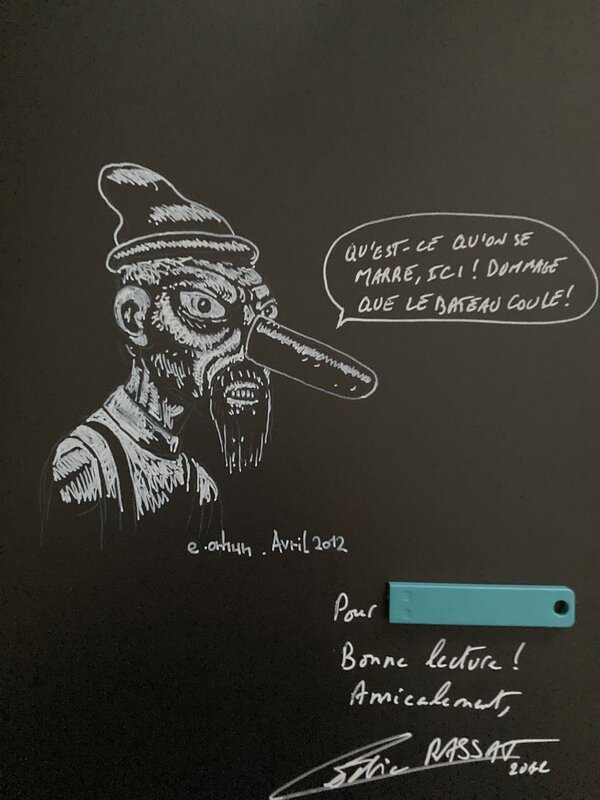 QU'EST-CE QU'ON SE
MARRE, ICI ! DOMMAGE
QUE LE BATEAU COULE !
e.omhun. Avril 2012
Pour
Bonne lecture !
Amicalement,
RASSAT
2012